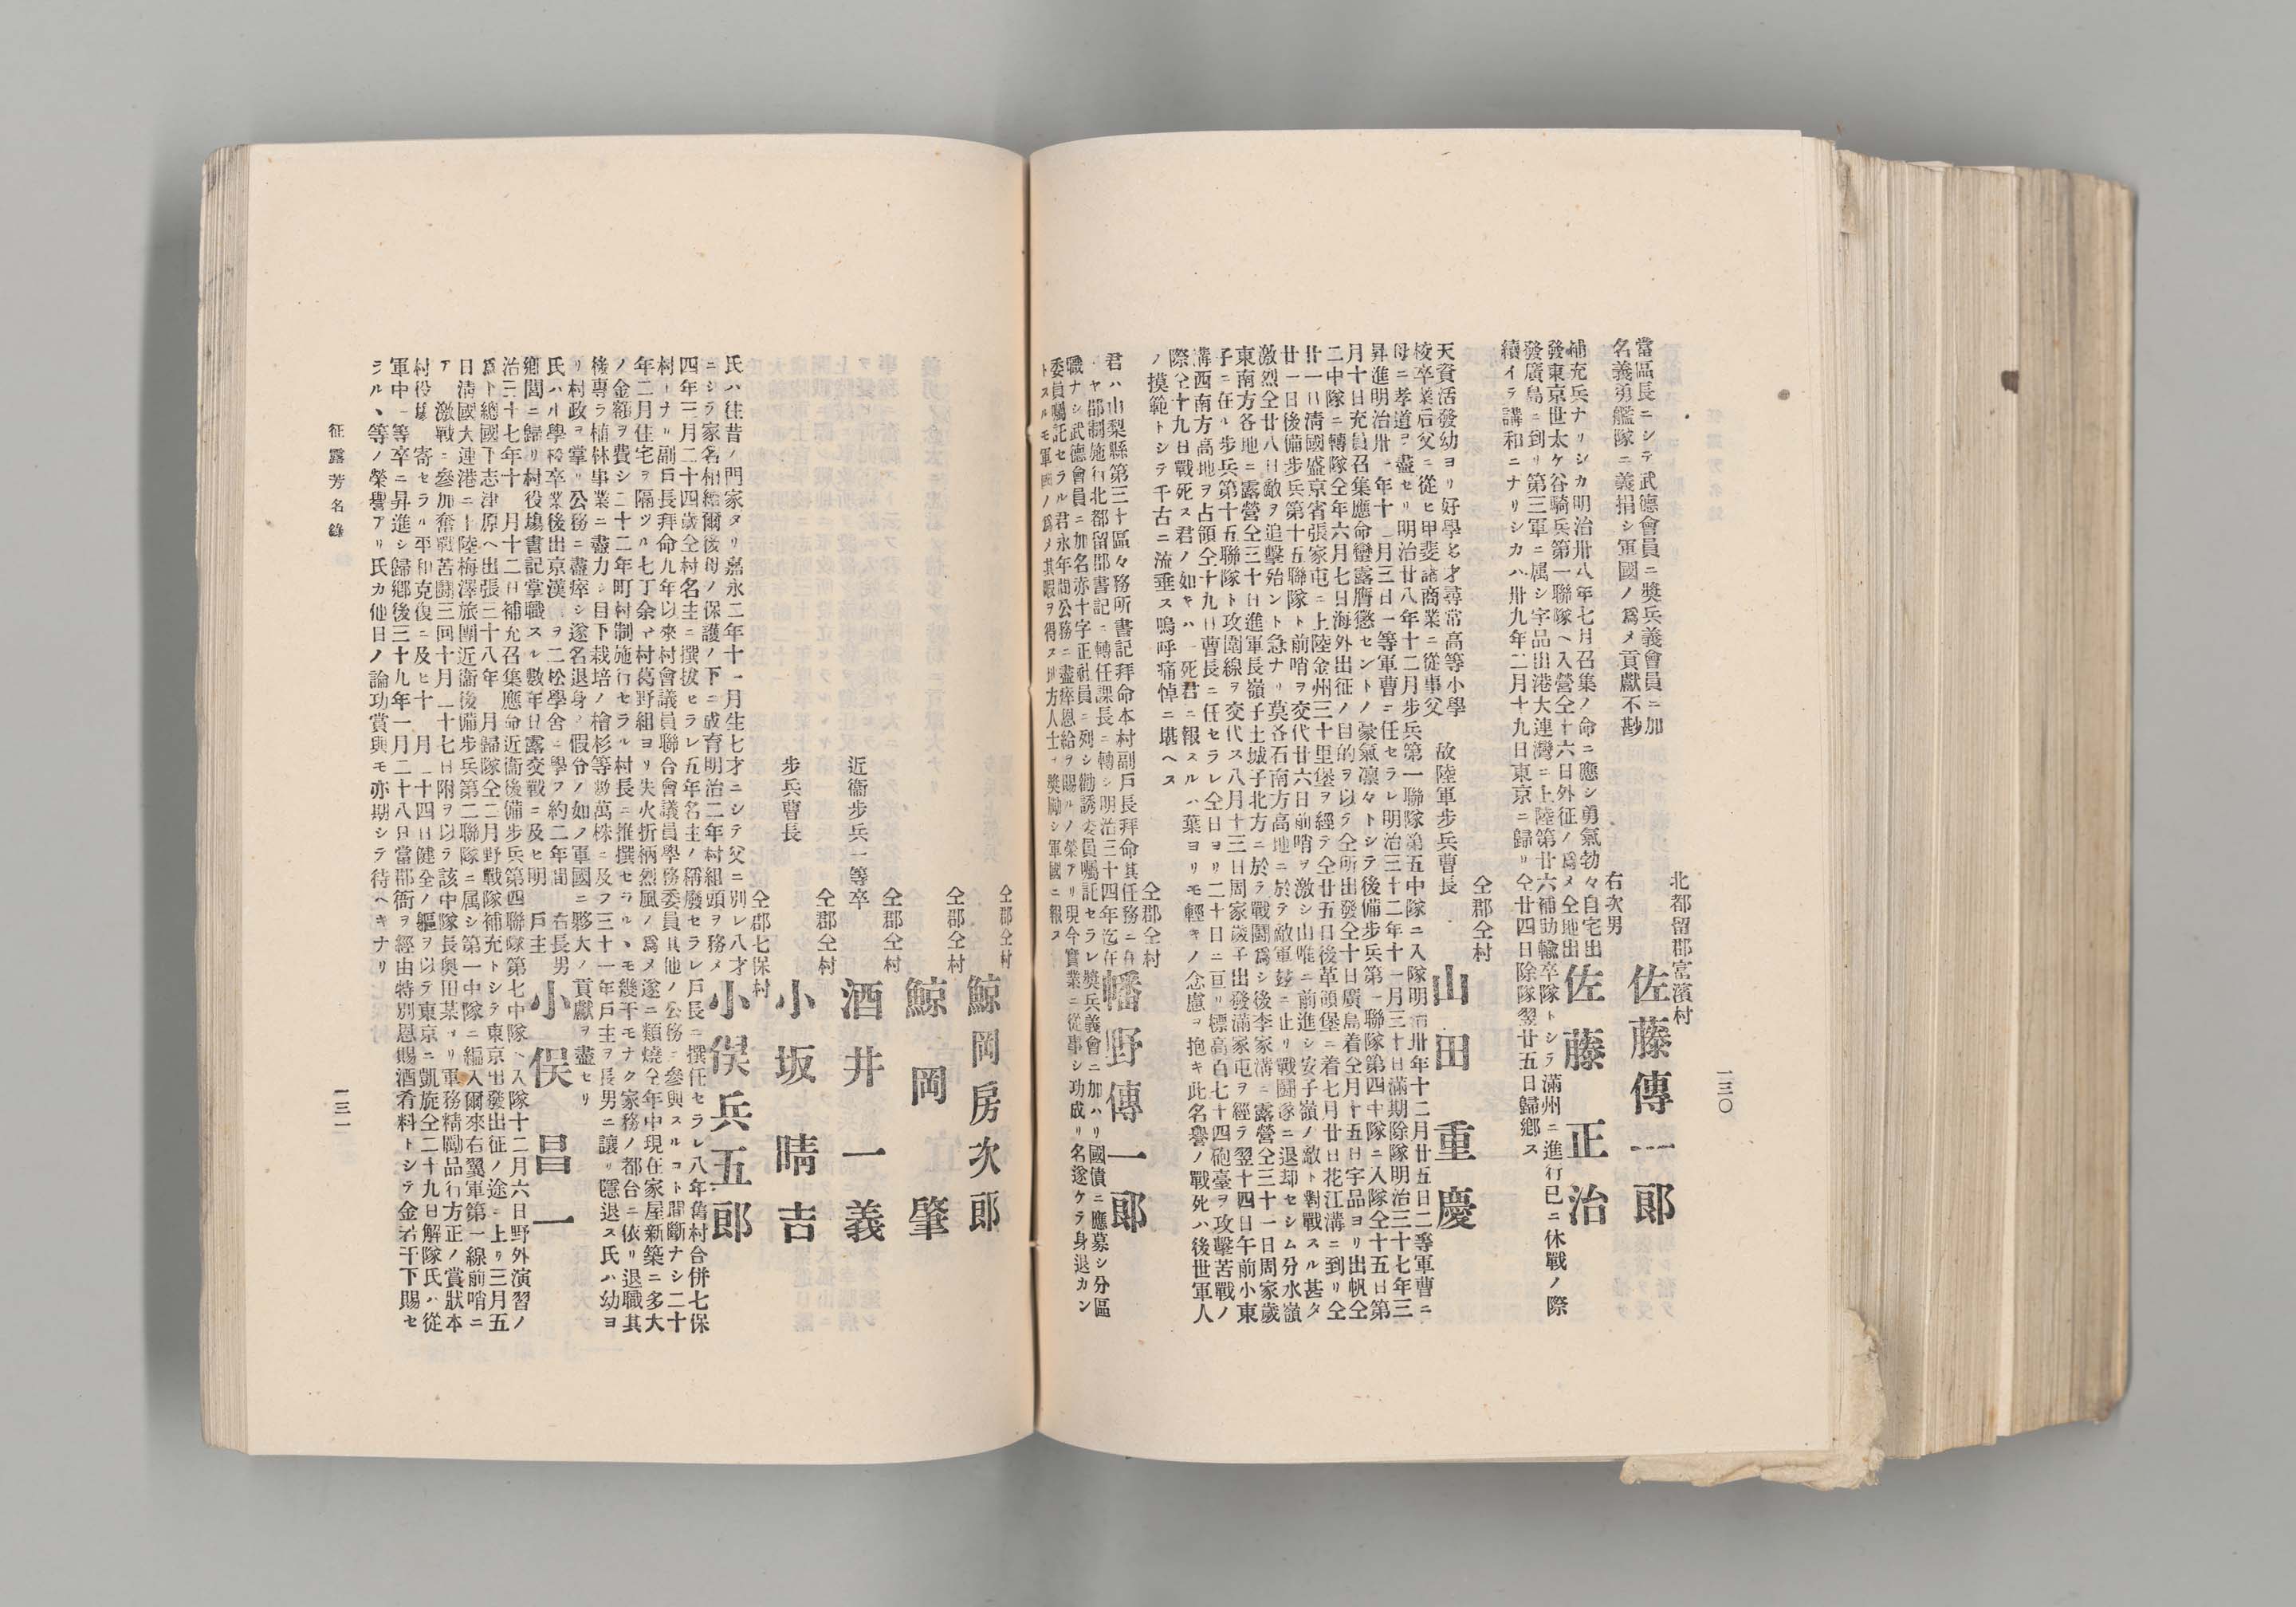 一三〇
北都留郡富濱村
佐藤傳一郎
當區長ニシテ武德會員ニ奬兵義會員ニ加
名義勇艦隊ニ義捐シ軍國ノ爲メ貢獻不尠
右次男
佐藤正治
補充兵ナリシカ明治卅八年七月召集ノ命ニ應シ勇氣勃々自宅出
發東京世太ケ谷騎兵第一聯隊ヘ入營仝十六日外征ノ爲メ仝地出
發廣島ニ到リ第三軍ニ属シ宇品出港大連灣ニ上陸第廿六補助輸卒隊トシテ滿州ニ進行已ニ休戰ノ際
續イテ講和ニナリシカハ卅九年二月十九日東京ニ歸リ仝廿四日除隊翌廿五日歸鄕ス
仝郡仝村
故陸軍步兵曹長
山田重慶
天資活發幼ヨリ好學名才尋常高等小學
校卒業后父ニ從ヒ甲斐諸商業ニ從事父
母ニ孝道ヲ盡セリ明治廿八年十二月步兵第一聯隊第五中隊ニ入隊明治卅年十二月廿五日二等軍曹ニ
昇進明治卅一年十二月三日一等軍曹ニ任セラレ明治三十二年十一月三十日滿期除隊明治三十七年三
月十日充員召集應命蠻露膺懲セントノ豪氣凛々トシテ後備步兵第一聯隊第四中隊ニ入隊仝十五日第
二中隊ニ轉隊仝年六月七日海外出征ノ目的ヲ以テ仝所出發仝十日廣島着仝月十五日宇品ヨリ出帆仝
廿一日淸國盛京省張家屯ニ上陸金州三十里堡ヲ經テ仝廿五日後革頭堡ニ着七月廿日花江溝ニ到リ仝
廿一日後備步兵第十五聯隊ト前哨ヲ交代廿六日前哨ヲ激シ山唯ニ前進シ安子嶺ノ敵ト對戰スル甚タ
激烈仝廿八日敵ヲ追擊殆ント急ナリ莫各石南方高地ニ於テ敵軍彭ニ止リ戰鬪遂ニ退却セシム分水嶺
東南方各地ニ露營仝三十日進軍長嶺子土城子北方ニ於テ戰鬪爲シ後李家溝ニ露營仝三十一日周家歲
子ニ在ル步兵第十五聯隊ト攻圍線ヲ交代ス八月十三日周家歲子出發滿家屯ヲ經テ翌十四日午前小東
溝西南方高地ヲ占領仝十九日曹長ニ任セラレ仝日ヨリ二十日ニ亘リ標高百七十四砲臺ヲ攻擊苦戰ノ
際仝十九日戰死ス君ノ如キハ一死君ニ報スルハ葉ヨリモ輕キノ念慮ヲ抱キ此名譽ノ戰死ハ後世軍人
ノ摸範トシテ千古ニ流垂ス嗚呼痛悼ニ堪ヘス
仝郡仝村
幡野傳一郎
君ハ山梨縣第三十區々務所書記拜命本村副戶長拜命其任務ニ在
ヤ郡制施行北都留郡書記ニ轉任課長ニ轉シ明治三十四年迄在
職ナシ武德會員ニ加名赤十字正社員ニ列シ勸誘委員囑託セラレ奬兵義會ニ加ハリ國債ニ應募シ分區
委員囑託セラル君永年間公務ニ盡瘁恩給ヲ賜ルノ榮アリ現今實業ニ從事シ功成リ名遂ケテ身退カン
トスルモ軍國ノ爲メ其暇ヲ得ス地方人士ヲ奬勵シ軍國ニ報ス
仝郡仝村
鯨岡房次郎
仝郡仝村
鯨岡肇
仝郡仝村
近衞步兵一等卒
酒井一義
仝郡仝村
步兵曹長
小坂晴吉
仝郡七保村
小俣兵五郎
氏ハ往昔ノ門家タリ嘉永二年十一月生七才ニシテ父ニ別レ八才
ニシテ家名相續爾後母ノ保護ノ下ニ成育明治二年村組頭ヲ務メ
四年三月二十四歲仝村名主ニ撰拔セラレ五年名主ノ稱廢セラレ戶長ニ撰任セラレ八年舊村合併七保
村トナル副戶長拜命九年以來村會議員聯合會議員學務委員其他ノ公務ニ參與スルコト間斷ナシ二十
年二月住宅ヲ隔ツル七丁余ヤ村葛野組ヨリ失火折柄烈風ノ爲メ遂ニ類燒仝年中現在家屋新築ニ多大
ノ金額ヲ費シ二十二年町村制施行セラル村長ニ推撰セラルヽモ幾干モナク家務ノ都合ニ依リ退職其
後專ラ植林事業ニ盡力シ目下栽培ノ檜杉等數萬株ニ及フ三十一年戶主ヲ長男ニ讓リ隱退ス氏ハ幼ヨ
リ村政ヲ掌リ公務ニ盡瘁シ遂名退身ノ假令ノ如ノ軍國ニ夥大ノ貢獻ヲ盡セリ
右長男
戶主
小俣昌一
氏ハ小學校卒業後出京漢 ヲ二松學舍ニ學フ約二年間
鄕閭ニ歸リ村役塲書記掌職スル數年日露交戰ニ及セ明
治三十七年十 月十二日補充召集應命近衞後備步兵第四聯隊第七中隊ヘ入隊十二月六日野外演習ノ
爲下總國下志津原ヘ出張三十八年 月歸隊仝二月野戰隊補充トシテ東京出發出征ノ途ニ上リ三月五
日淸國大連港ニ上陸梅澤旅團近衞後備步兵第二聯隊ニ属シ第一中隊ニ編入爾來右翼軍第一線前哨ニ
ア 激戰ニ參加奮戰苦鬪三回十月二十七日附ヲ以テ該中隊長奧田某ヨリ軍務精勵品行方正ノ賞狀本
村役塲 寄セラル平和克復ニ及ヒ十 月二十四日健全ノ軀ヲ以テ東京ニ凱旋仝二十九日解隊氏ハ從
軍中一等卒ニ昇進シ歸鄕後三十九年一月二十八日當郡衙ヲ經由特別恩賜酒肴料トシテ金若干下賜セ
ラルヽ等ノ榮譽アリ氏カ他日ノ論功賞與モ亦期シテ待ヘキナリ
征露芳名錄
一三一